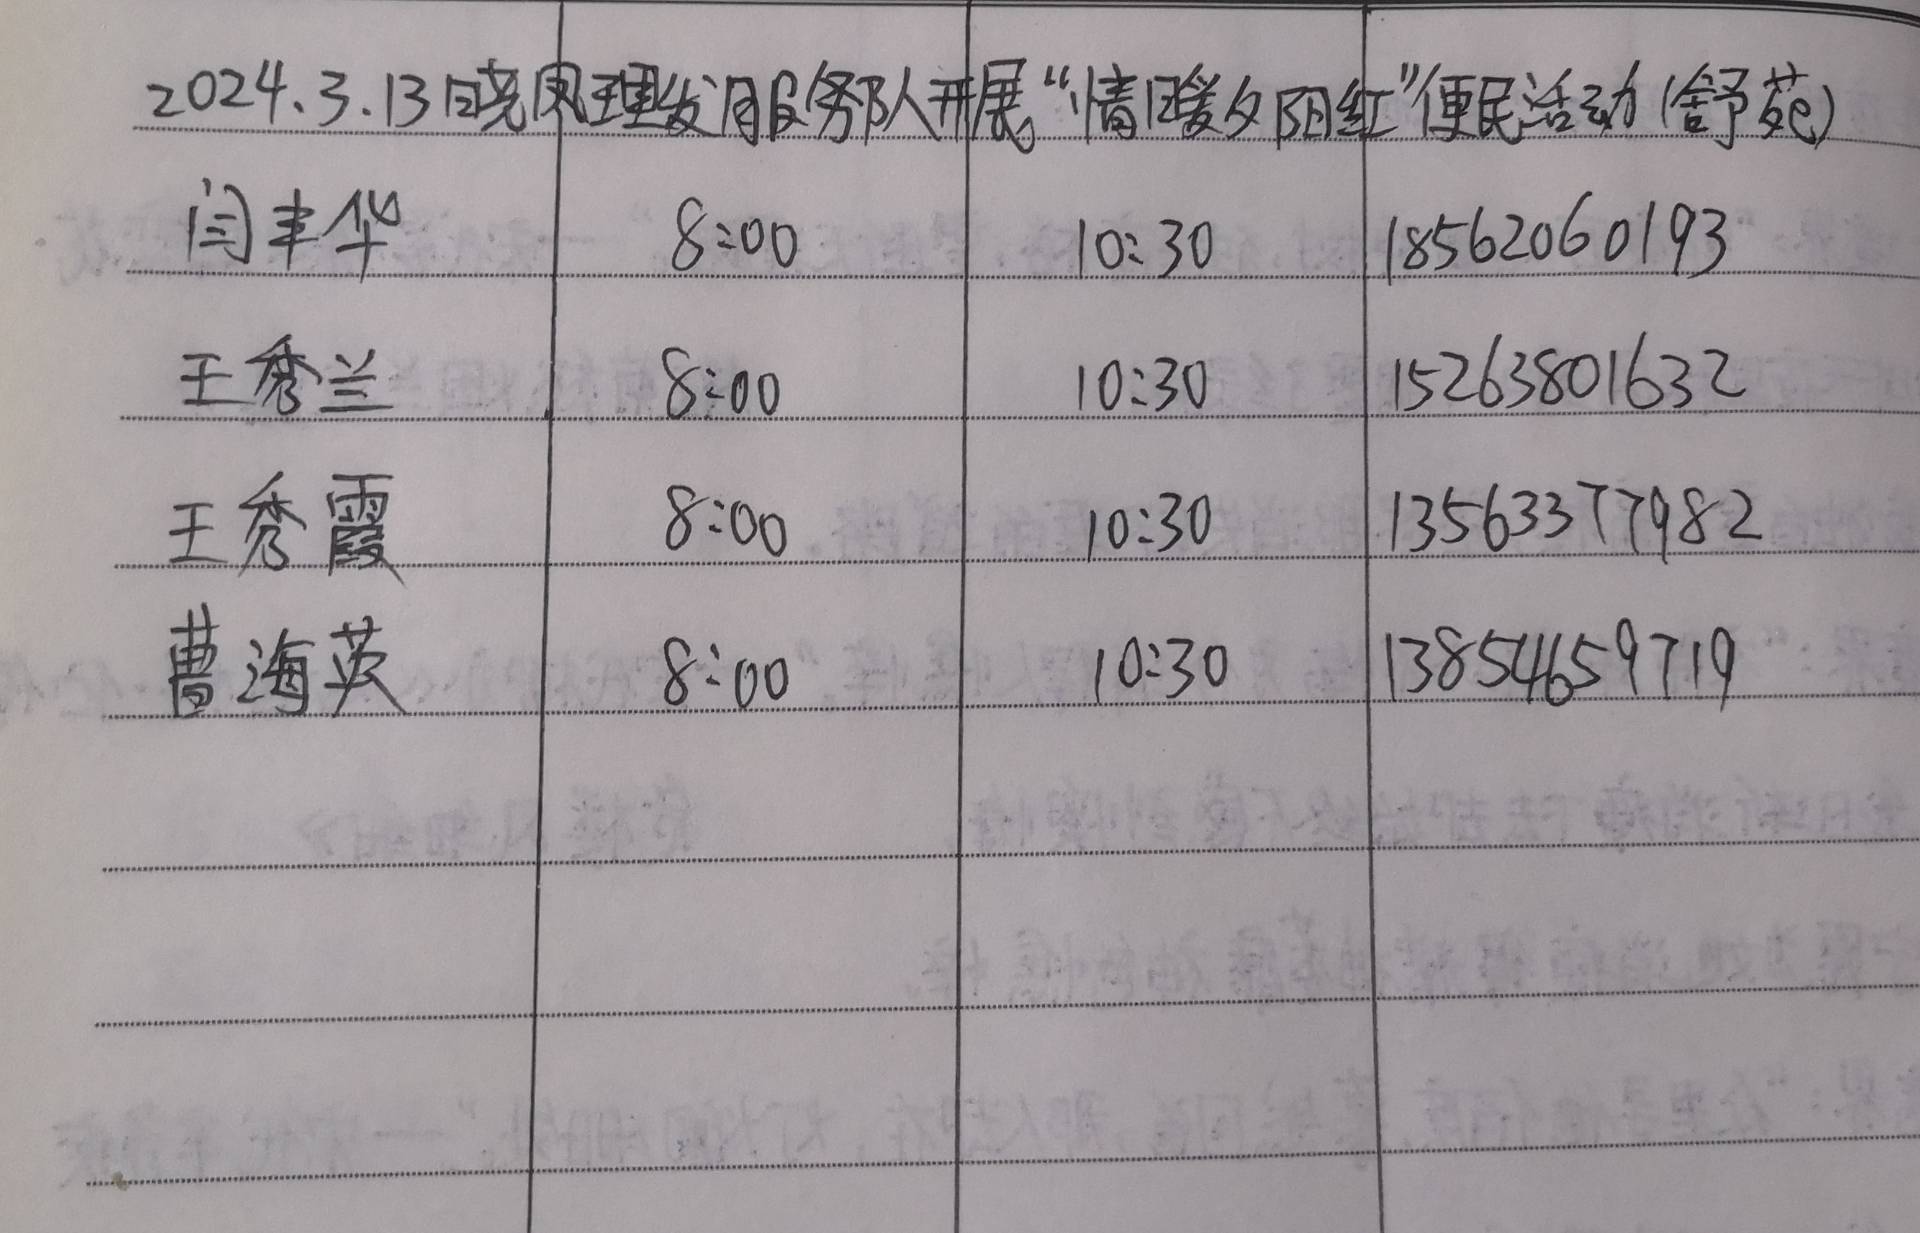 2024.3.13日晓凤理发服务队开展“情暖夕阳红”便民活动(舒苑)
闫丰华 8:00 10:30 18562060193
王秀兰 8:00 10:30 15263801632
王秀霞 8:00 10:30 13563377982
曹海英 8:00 10:30 13854659719